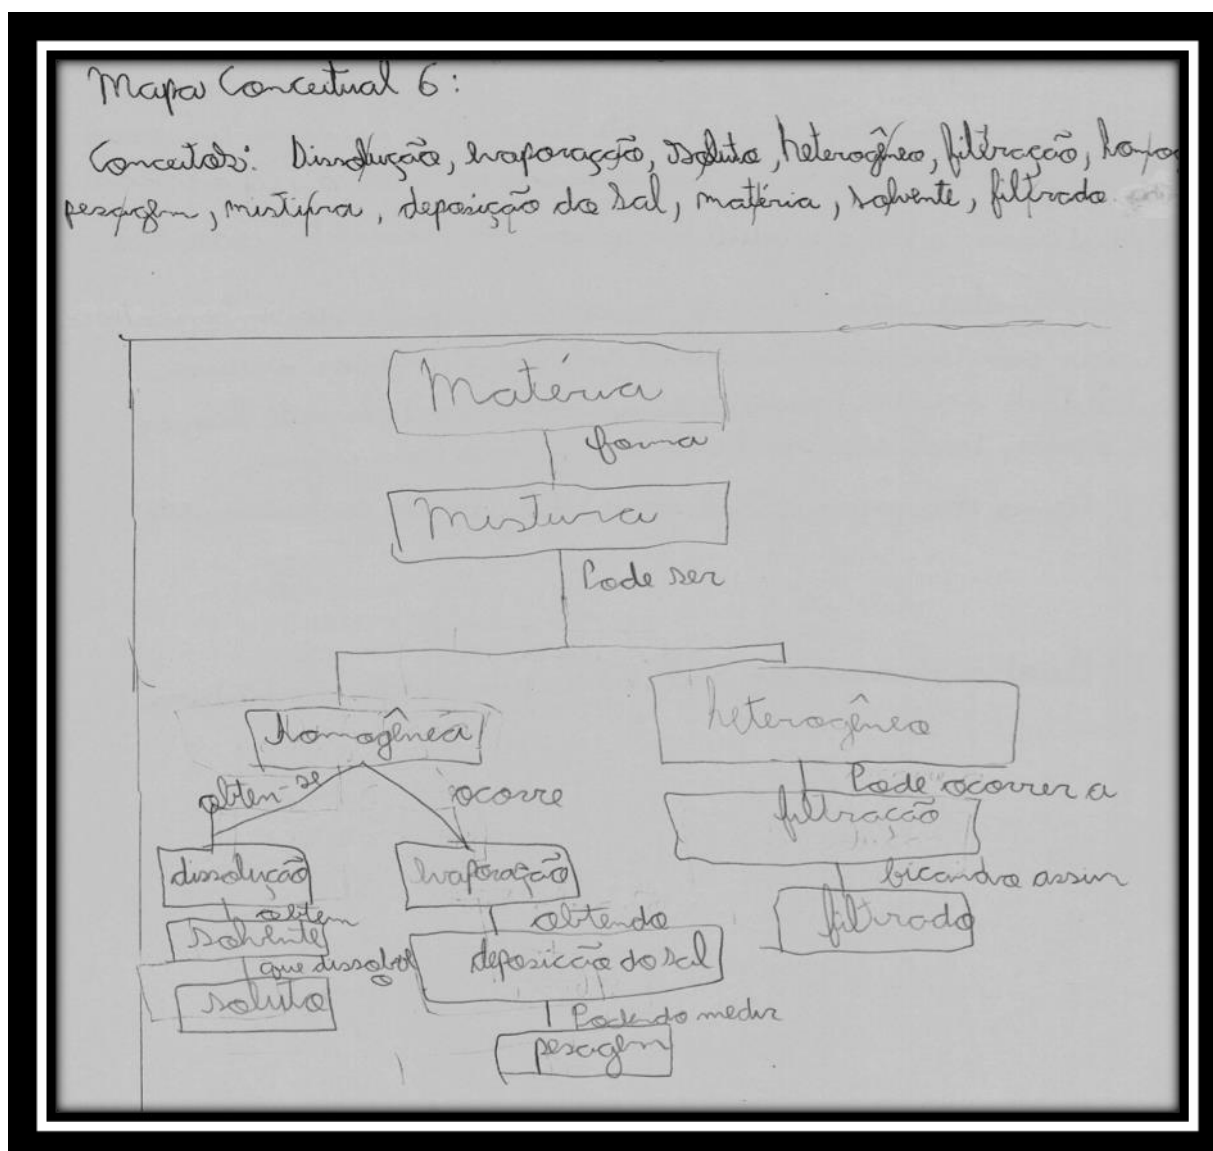 Mapa Conceitual 6:
Conceitos: Dissolução, evaporação, soluto, heterogêneo, filtração, homog
pesagem, mistura, deposição do sal, matéria, solvente, filtrado
Matéria
forma
Mistura
Pode ser
homogênea
heterogêneo
obten-se
ocorre
Pode ocorrer a
filtração
dissolução
evaporação
ficando assim
obtem
obtendo
filtrado
solvente
que dissolve o
deposicão do sal
soluto
Podendo medir
pesagem